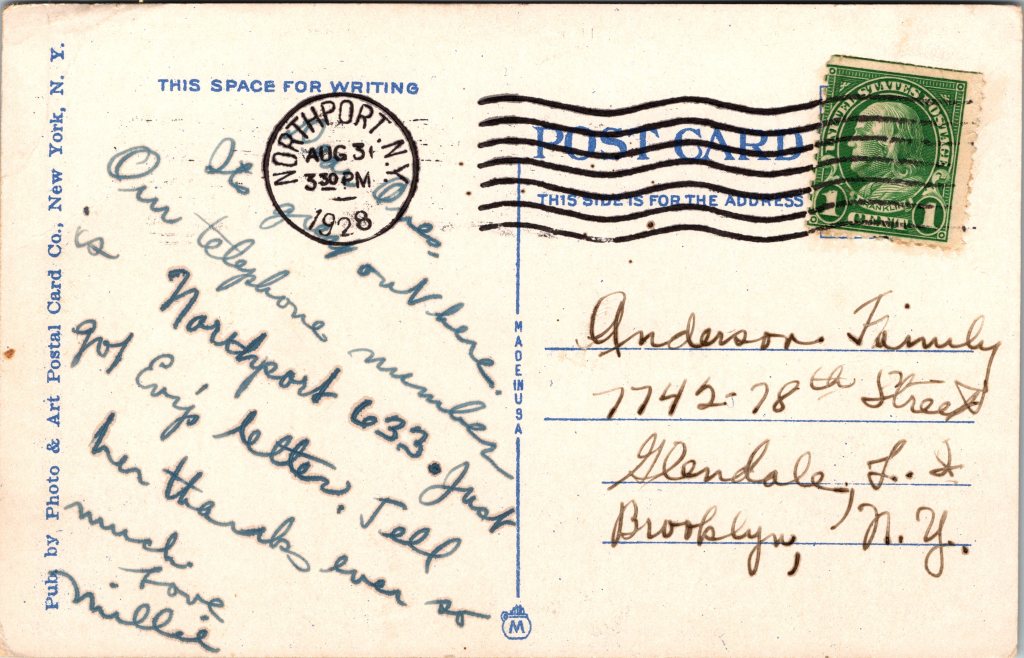 THIS SPACE FOR WRITING
NORTHPORT. N.Y.
AUG 31
3 30 PM
1928
Ones
Its out here.
Our telephone number
is Northport 633. Just
got Evy's letter. Tell
her thanks ever so
much
Love
Millie
Pub. by Photo & Art Postal Card Co., New York, N. Y.
MADE IN USA
M
POST CARD
THIS SIDE IS FOR THE ADDRESS
UNITED STATES POSTAGE
FRANKLIN
1 1
Anderson Family
7742-78th Street
Glendale, L. I
Brooklyn, N.Y.